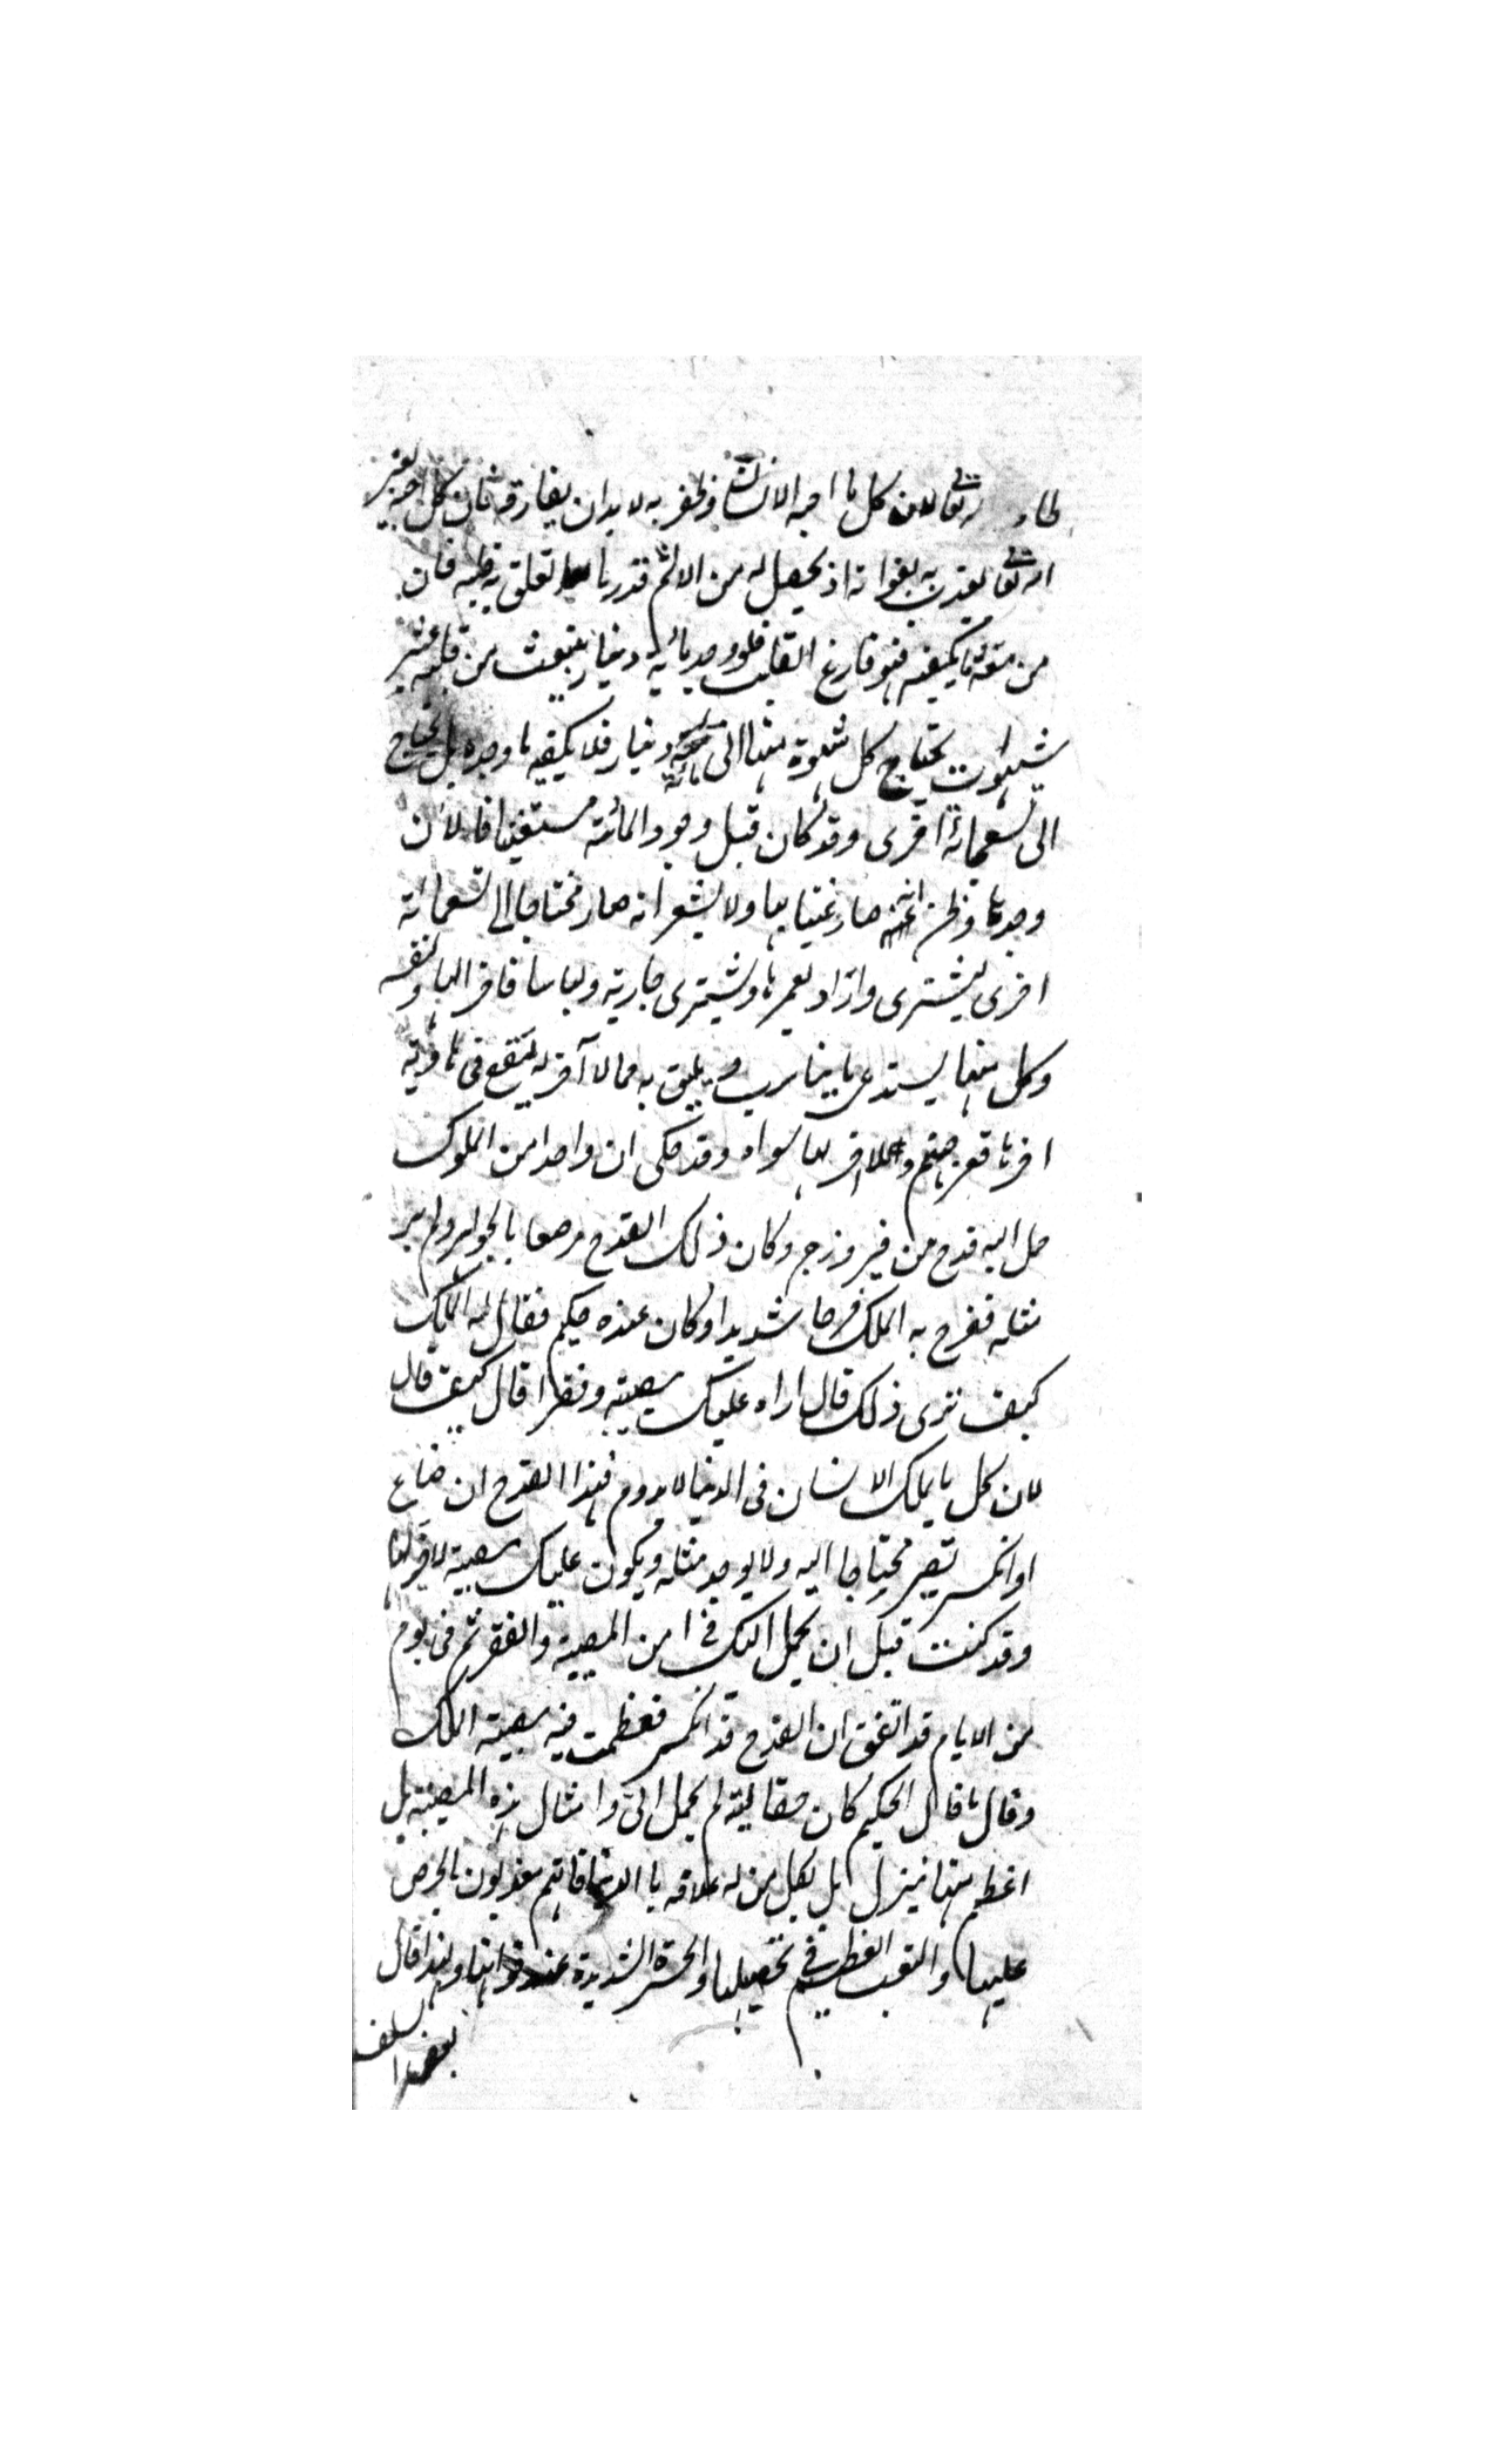 تعالى لان كل ما احبه الانسان وظفر به لا بد ان يفارقه فان كل احبه لغير
الله تعالى يعذب به بفواته اذ يحصل له من الالم قدر ما تعلق به قلبه فان
من معه ما يكفيه فهو فارغ القلب فلو وجد مائة دينار ينبعث من قلبه عشر
شهوات يحتاج كل شهوة منها الى مائة دينار فلا يكفيه ما وجده بل يحتاج
الى تسعمائة اخرى وقد كان قبل وجود المائة مستغنيا فالآن
وجدها وظن انه صار غنيا بها ولا يشعر انه صار محتاجا الى تسعمائة
اخرى ليشترى دارا يعمرها ويشترى جارية ولباسا فاخرا لباو نفسه
وكل منها يستدعى ما يناسب ويليق به مما لا آخر له فيقع فى هاوية
اخرها قعر جهنم ولا اخر لها سواه وقد حكى ان واحدا من الملوك
حمل اليه قدح من فيروزج وكان ذلك القدح مرصعا بالجواهر ولم ير
مثله ففرح به الملك فرحا شديدا وكان عنده حكيم فقال له الملك
كيف ترى ذلك قال اراه عليك مصيبة وفقرا قال كيف قال
لان كل ما يملك الانسان فى الدنيا لا يدوم فهذا القدح ان ضاع
او انكسر تصير محتاجا اليه ولا يوجد مثله ويكون عليك مصيبة لا آخر لها
وقد كنت قبل ان يحمل اليك فى امن من المصيبة والفقر ثم فى يوم
من الايام قد اتفق ان القدح قد انكسر فعظمت فيه مصيبة الملك
وقال ما قال الحكيم كان حقا ليته لم يحمل الىّ وامثال هذه المصيبة بل
اعظم منها ينزل بل بكل من له علاقة با الدنيا فانهم معذبون بالحرص
عليها والتعب العظيم فى تحصيلها والحسرة الشديدة عند فواتها ولهذا قال
بعض السلف